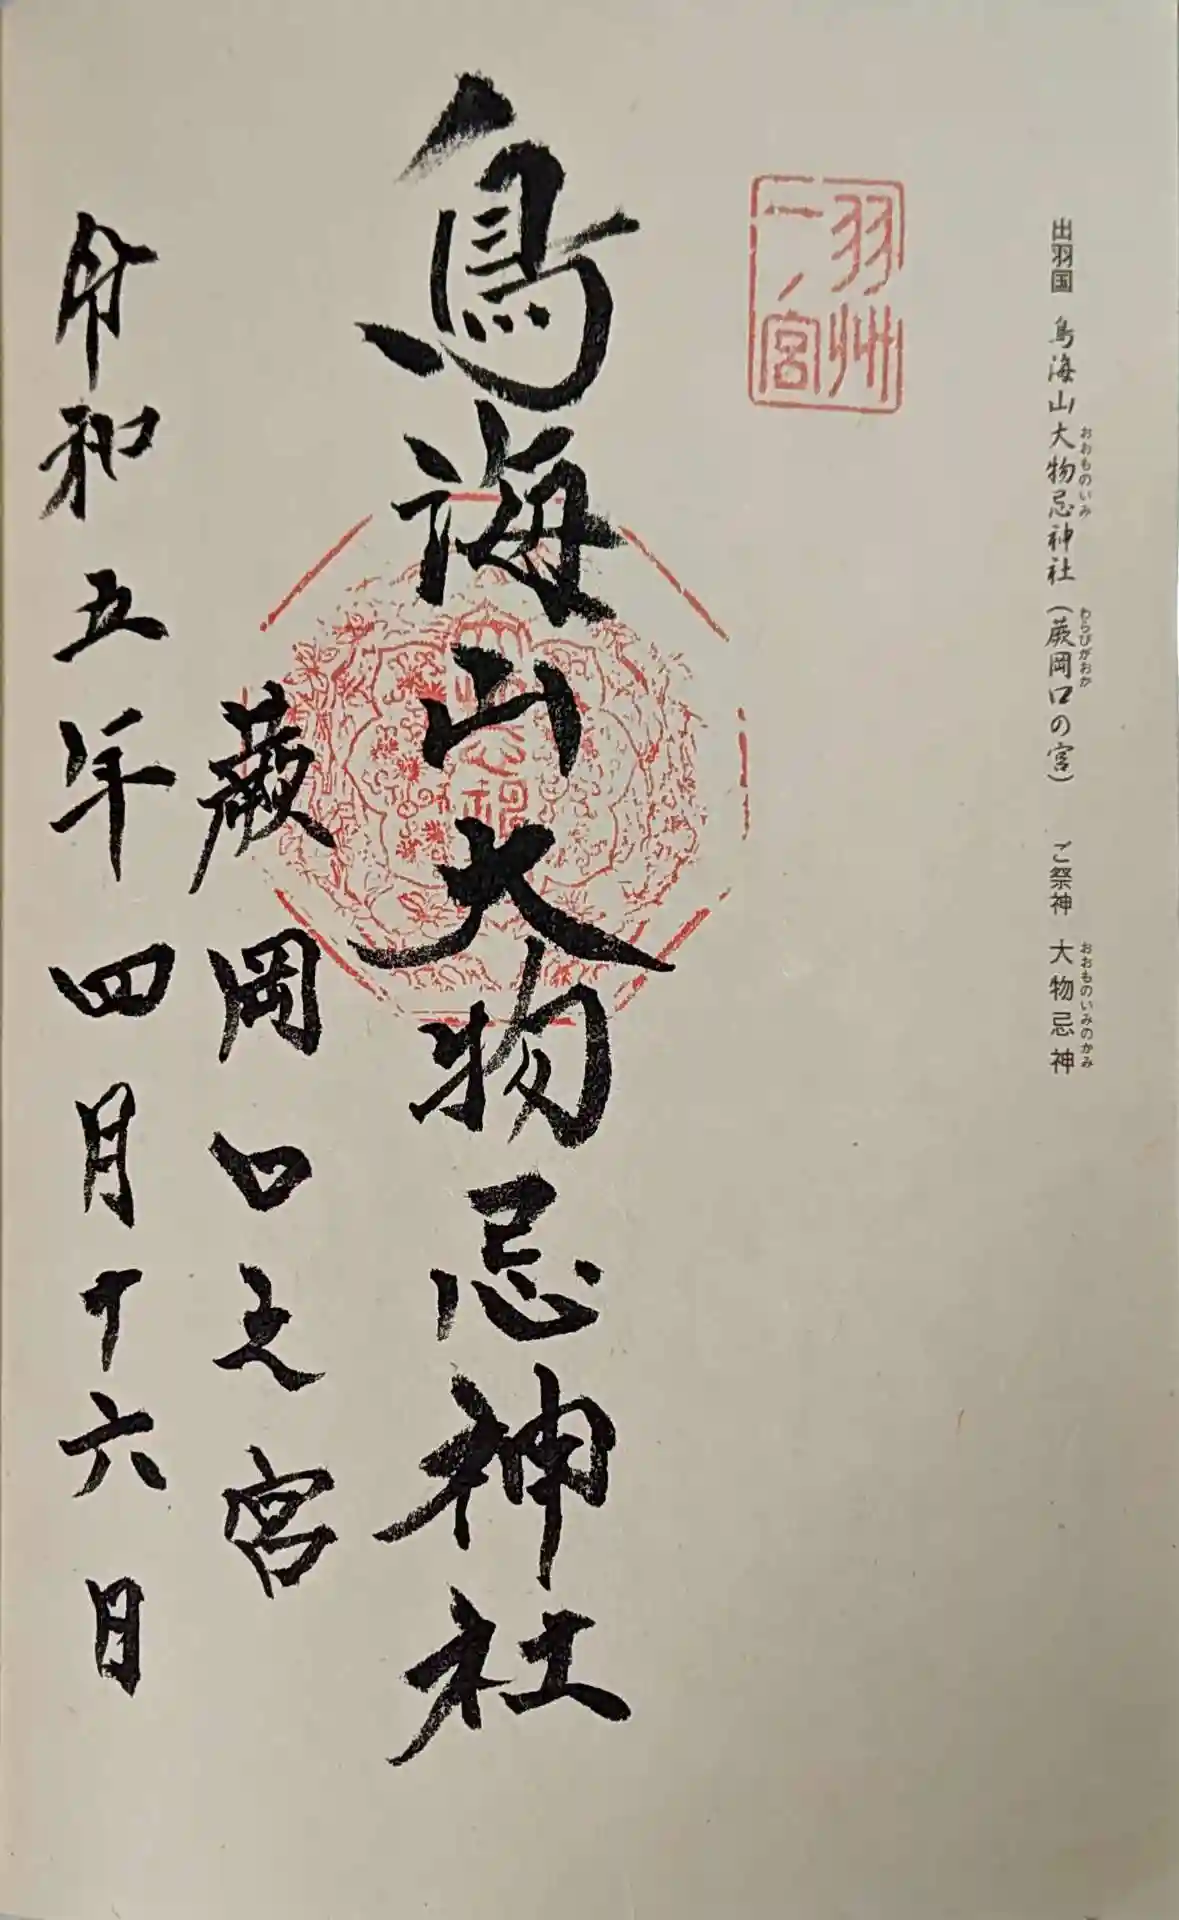 出羽国 鳥海山大物忌神社（蕨岡口の宮） ご祭神 大物忌神
おおものいみ
わらびがおか
おおものいみのかみ
羽州
一ノ宮
鳥海山大物忌神社
蕨岡口之宮
令和五年四月十六日